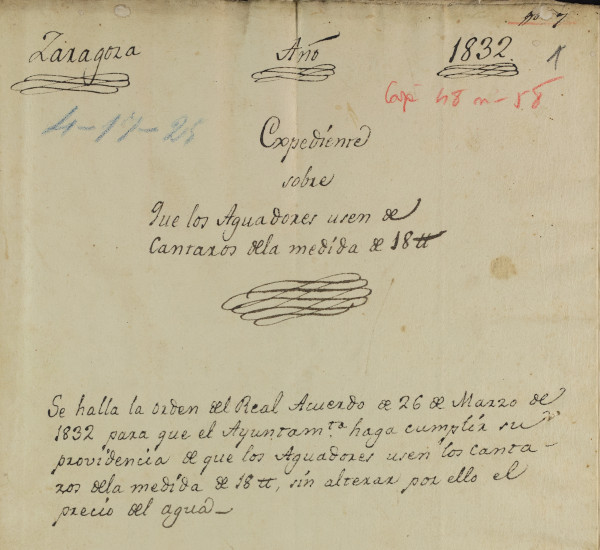 nº 7
Zaragoza Año 1832 1
Caj. 48 n-58
4-17-25
Expediente
sobre
Que los Aguadores usen de
Cantaros dela medida de 18 tt
Se halla la orden del Real Acuerdo de 26 de Marzo de
1832 para que el Ayuntam.to haga cumplir su
providencia de que los Aguadores usen los canta-
ros dela medida de 18 tt, sin alterar por ello el
precio del agua-